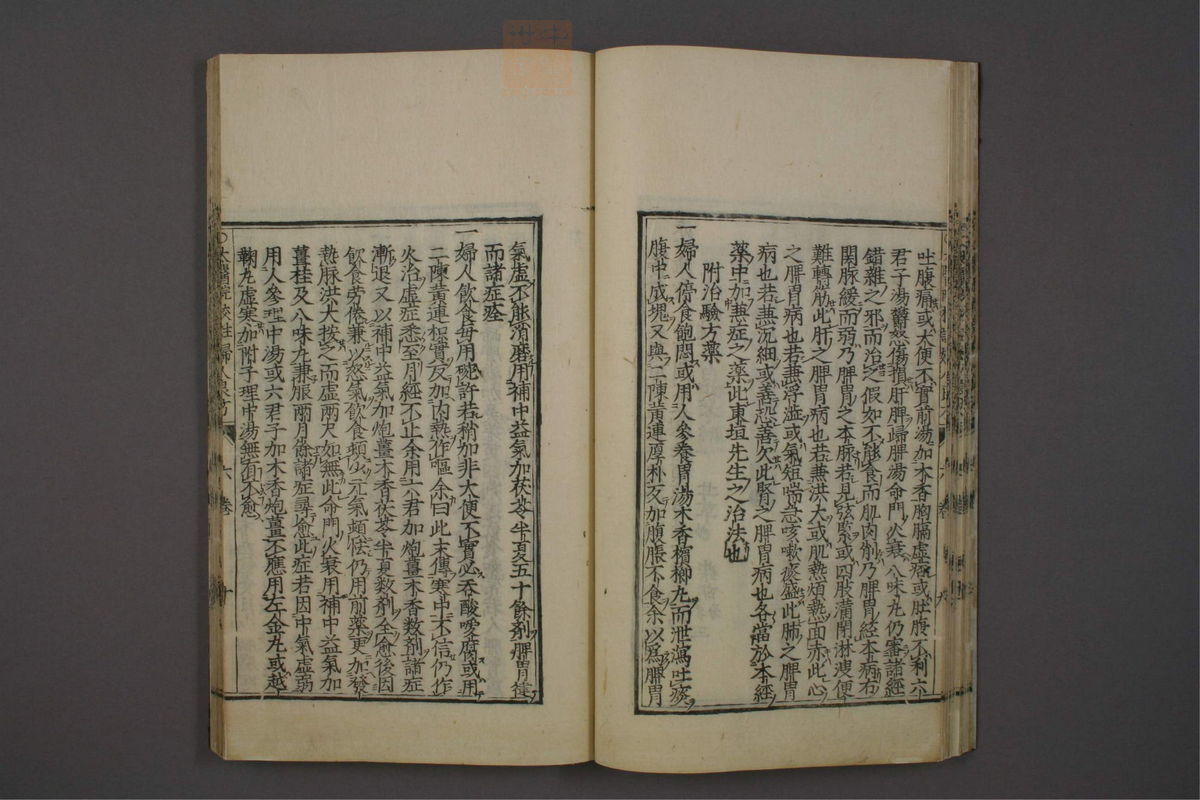 吐腹痛或大便不實前湯加木香胸膈虚痞或肚腹不利六
君子湯鬱怒傷損肝脾歸脾湯命門火衰八味丸仍審諸經
錯雜之邪而治之假如不能食而肌肉削乃脾胃經本病右
関脉緩而弱乃脾胃之本脉若見弦緊或四肢滿閉淋溲便
難轉筋此肝之脾胃病也若兼洪大或肌熱煩熱面赤此心
之脾胃病也若兼浮澁或氣短喘急咳嗽痰盛此肺之脾胃
病也若兼沉細或善恐善欠此腎之脾胃病也各當於本經
藥中加兼症之藥此東垣先生之治法也
附治驗方藥
一婦人停食飽悶或用人參養胃湯木香檳榔丸而泄瀉吐痰
腹中成塊又與二陳黄連厚朴反加腹脹不食余以爲脾胃
氣虚不能消磨用補中益氣加茯苓半夏五十餘劑脾胃徤
而諸症痊
一婦人飲食每用碗許若稍加非大便不實必吞酸噯腐或用
二陳黄連枳實反加内熱作嘔余曰此末傳寒中不信仍作
火治虚症悉至月經不止余用六君加炮薑木香数劑諸症
漸退又以補中益氣加炮薑木香茯苓半夏数劑全愈後因
飲食勞倦兼以怒氣飲食頓少元氣頓怯仍用前藥更加發
熱脉洪大按之而虚兩尺如無此命門火衰用補中益氣加
薑桂及八味丸兼服兩月餘諸症尋愈此症若因中氣虚弱
用人參理中湯或六君子加木香炮薑不應用左金丸或越
鞠丸虚寒加附子理中湯無有不愈
六卷